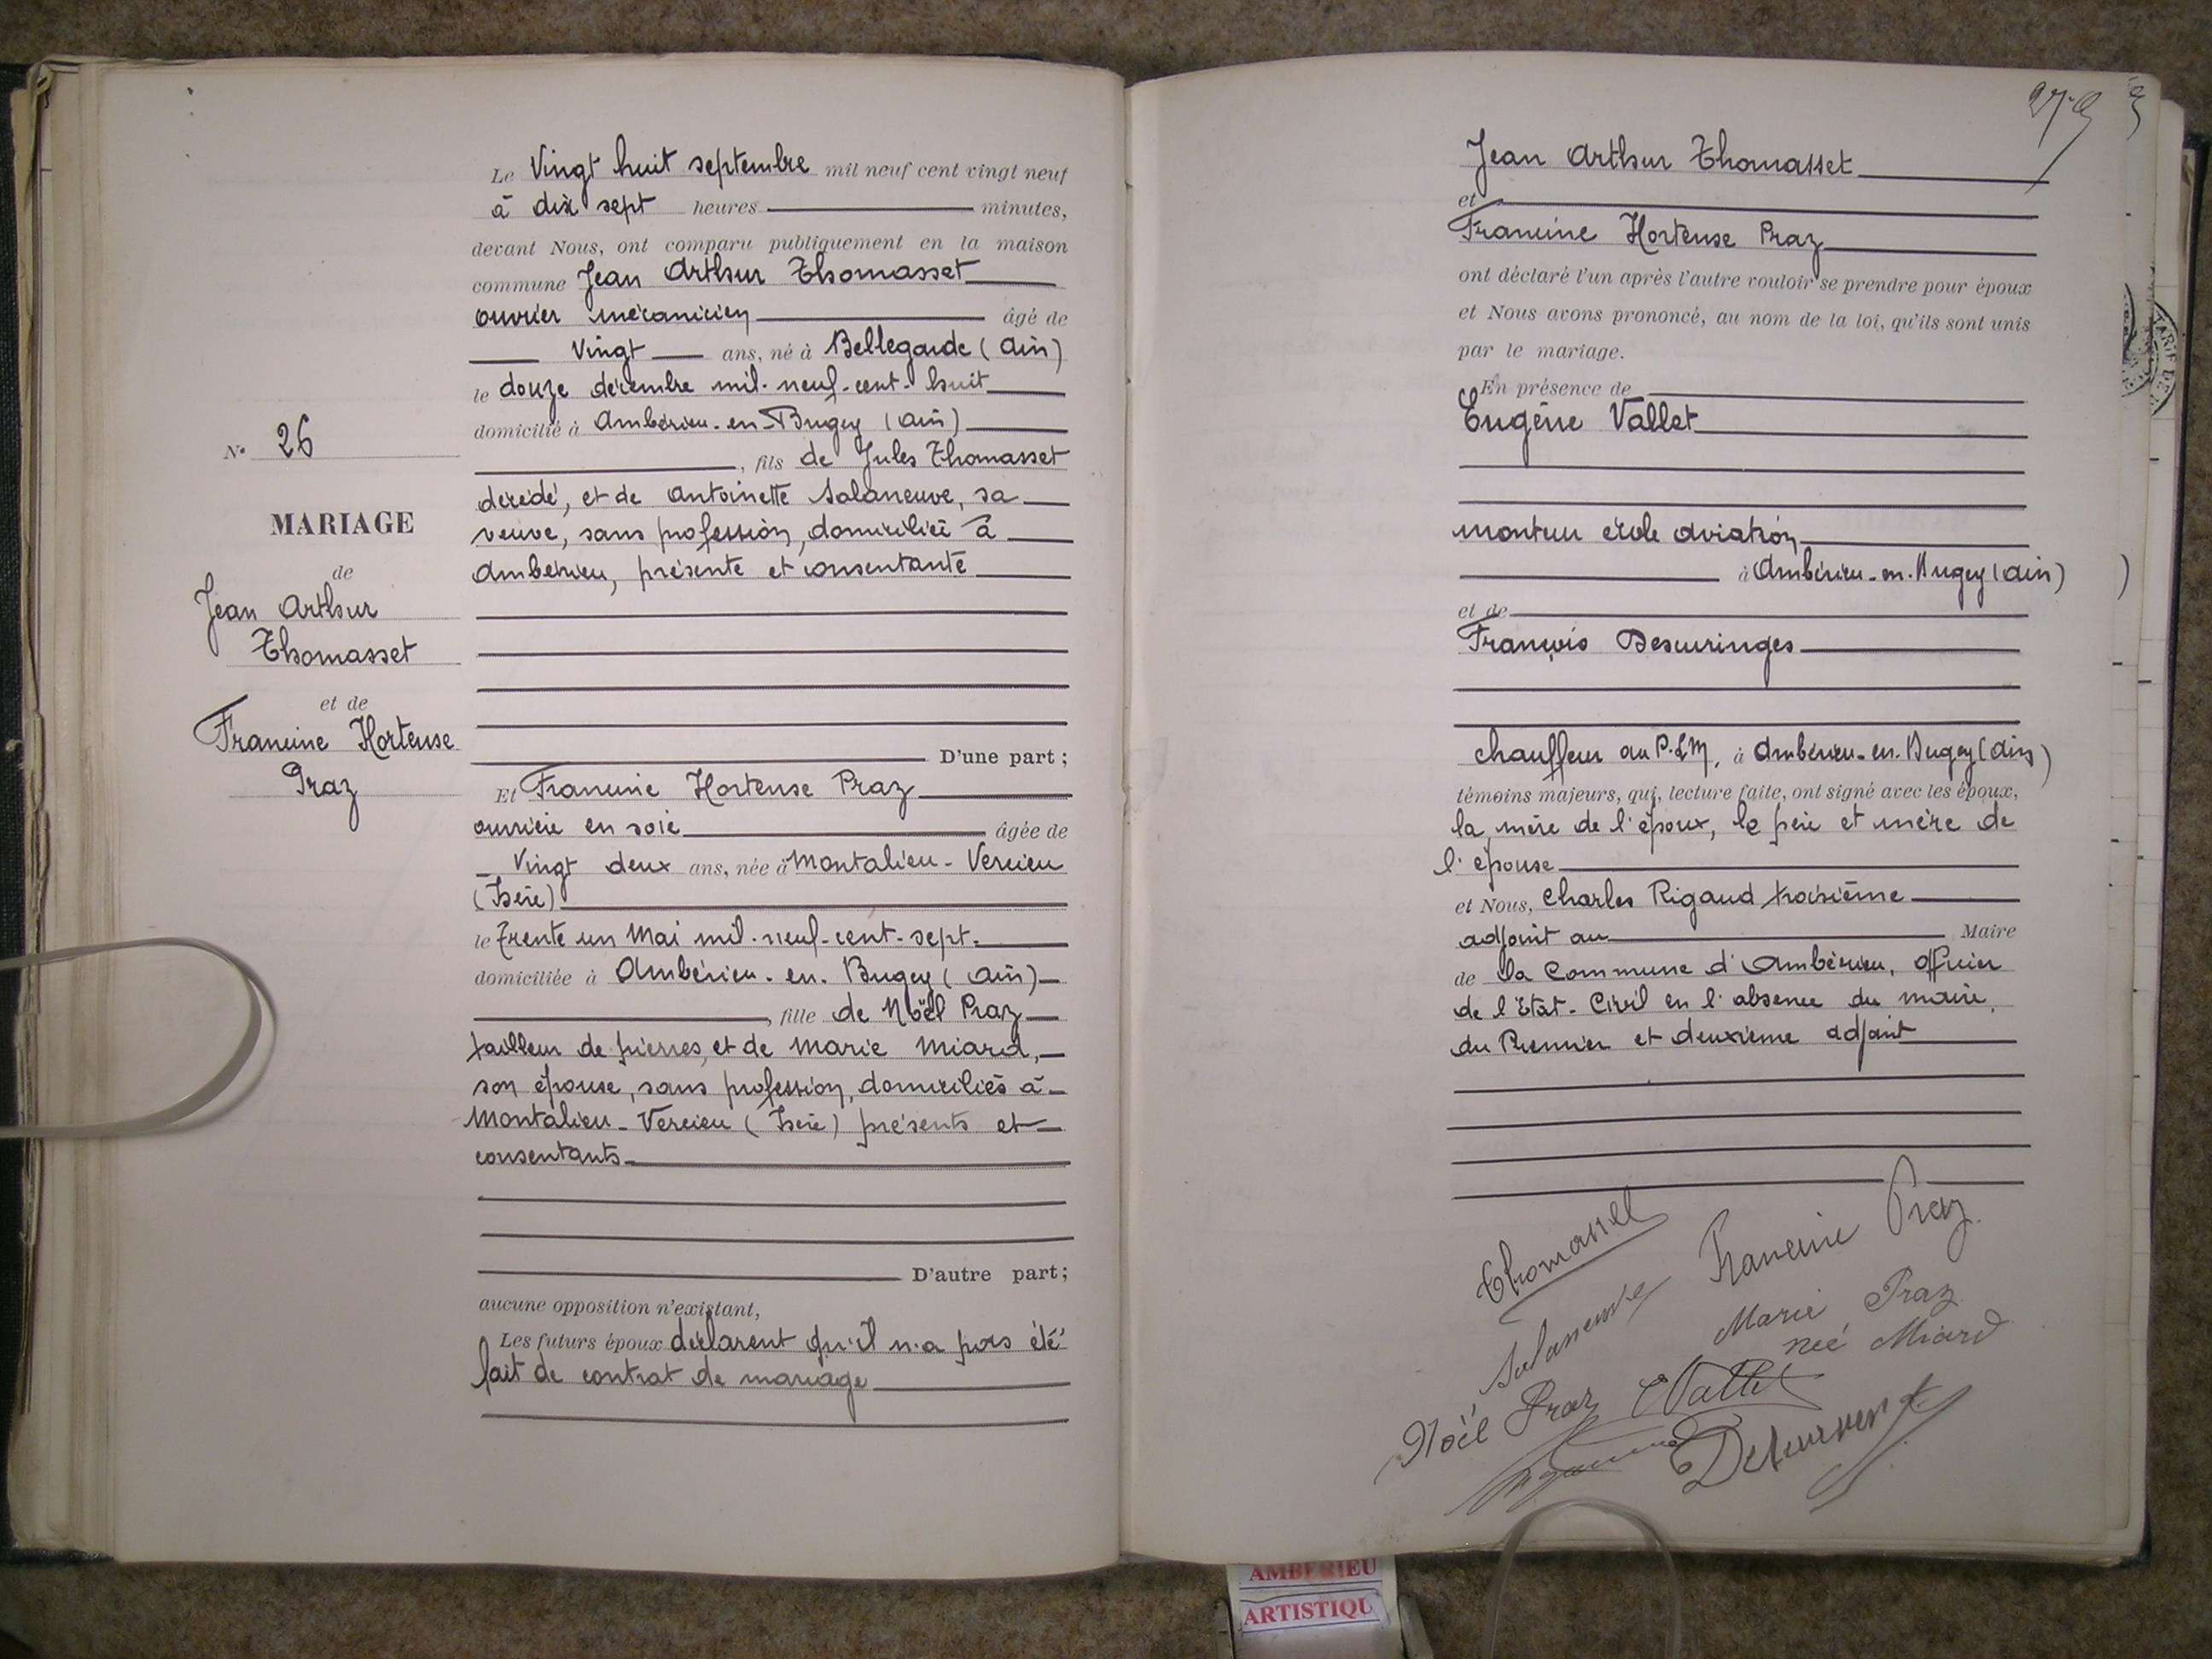 Le Vingt huit septembre mil neuf cent vingt neuf
à dix sept heures minutes,
devant Nous, ont comparu publiquement en la maison
commune Jean Arthur Thomasset
ouvrier mécanicien âgé de
Vingt ans, né à Bellegarde (Ain)
le douze décembre mil-neuf-cent-huit
domicilié à Ambérieu-en-Bugey (Ain)
, fils de Jules Thomasset
décédé, et de Antoinette Salaneuve, sa
veuve, sans profession, domiciliée à
Ambérieu, présente et consentante
D'une part;
N° 26
MARIAGE
de
Jean Arthur
Thomasset
et de
Francine Hortense
Praz
Et Francine Hortense Praz
ouvrière en soie âgée de
Vingt deux ans, née à Montalieu-Vercieu
(Isère)
le Trente un Mai mil-neuf-cent-sept
domiciliée à Ambérieu-en-Bugey (Ain)
, fille de Noël Praz
tailleur de pierres, et de Marie Miard,
son épouse, sans profession, domiciliés à
Montalieu-Vercieu (Isère) présents et
consentants
D'autre part;
aucune opposition n'existant,
Les futurs époux déclarent qu'il n'a pas été
fait de contrat de mariage
Jean Arthur Thomasset
et
Francine Hortense Praz
ont déclaré l'un après l'autre vouloir se prendre pour époux
et Nous avons prononcé, au nom de la loi, qu'ils sont unis
par le mariage.
En présence de
Eugène Vallet
monteur école aviation
à Ambérieu-en-Bugey (Ain)
et de
François Descuringes
chauffeur au P.L.M. à Ambérieu-en-Bugey (Ain)
témoins majeurs, qui, lecture faite, ont signé avec les époux,
la mère de l'époux, le père et mère de
l'épouse
et Nous, Charles Rigaud troisième
adjoint au Maire
de la Commune d'Ambérieu, officier
de l'Etat-Civil en l'absence du maire,
du Premier et deuxième adjoint
Thomasset
Francine Praz
Salaneuve
Marie Praz
née Miard
Noël Praz
E Vallet
AMBERIEU
ARTISTIQU